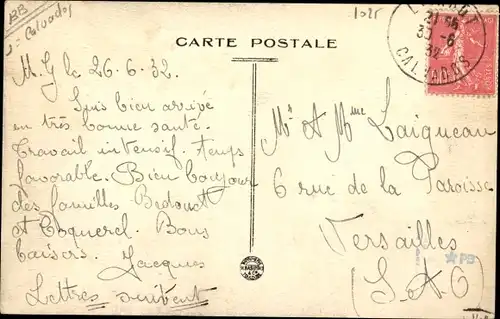 BB
= Calvados
1025
CARTE POSTALE
21
30-6
32
CALVADOS
M. G le 26.6.32.
Suis bien arrivé
en très bonne santé.
Travail intensif. temps
favorable. Bien bonjour
des familles Bedouet
et Coquerel. Bons
baisers.
Jacques
Lettres suivent
Mr et Mme Laigneau
6 rue de la Paroisse
Versailles
(S & O)
PB